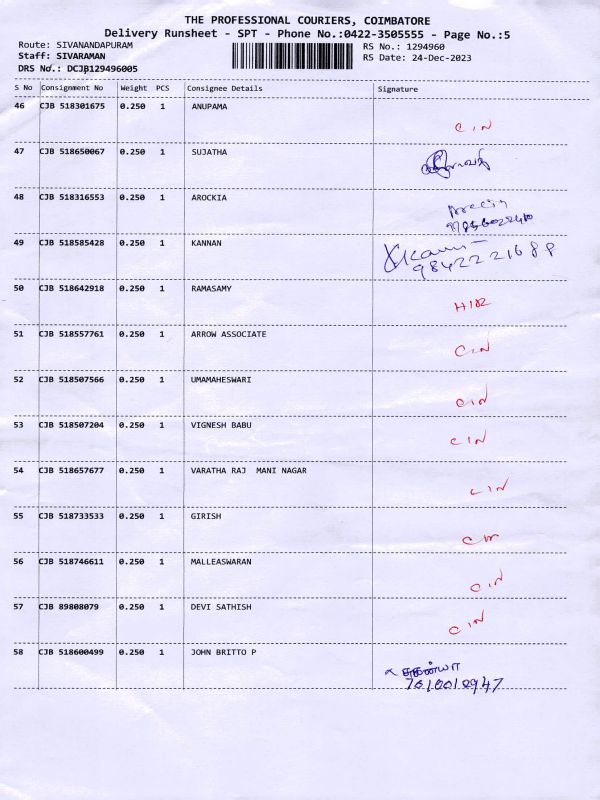 THE PROFESSIONAL COURIERS, COIMBATORE
Delivery Runsheet - SPT - Phone No.:0422-3505555 - Page No.:5
Route: SIVANANDAPURAM RS No.: 1294960
Staff: SIVARAMAN RS Date: 24-Dec-2023
DRS No.: DCJB129496005
S No Consignment No Weight PCS Consignee Details Signature
46 CJB 518301675 0.250 1 ANUPAMA
CIN
47 CJB 518650067 0.250 1 SUJATHA
48 CJB 518316553 0.250 1 AROCKIA
49 CJB 518585428 0.250 1 KANNAN
9842221688
50 CJB 518642918 0.250 1 RAMASAMY
51 CJB 518557761 0.250 1 ARROW ASSOCIATE
CIN
52 CJB 518507566 0.250 1 UMAMAHESWARI
CIN
53 CJB 518507204 0.250 1 VIGNESH BABU
CIN
54 CJB 518657677 0.250 1 VARATHA RAJ MANI NAGAR
CIN
55 CJB 518733533 0.250 1 GIRISH
CIN
56 CJB 518746611 0.250 1 MALLEASWARAN
CIN
57 CJB 89808079 0.250 1 DEVI SATHISH
CIN
58 CJB 518600499 0.250 1 JOHN BRITTO P
7010010947